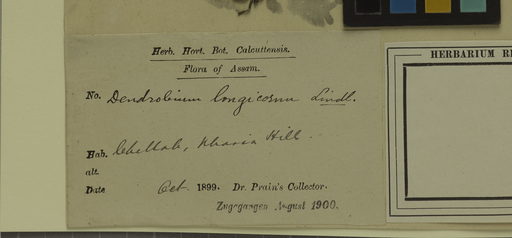 Herb. Hort. Bot. Calcuttensis.
HERBARIUM
Flora of Assam.
No. Dendrobium longicornu Lindl.
Hab. Khasia Hill
alt.
Date Oct. 1899. Dr. Prain's Collector.
Zugegangen August 1900.